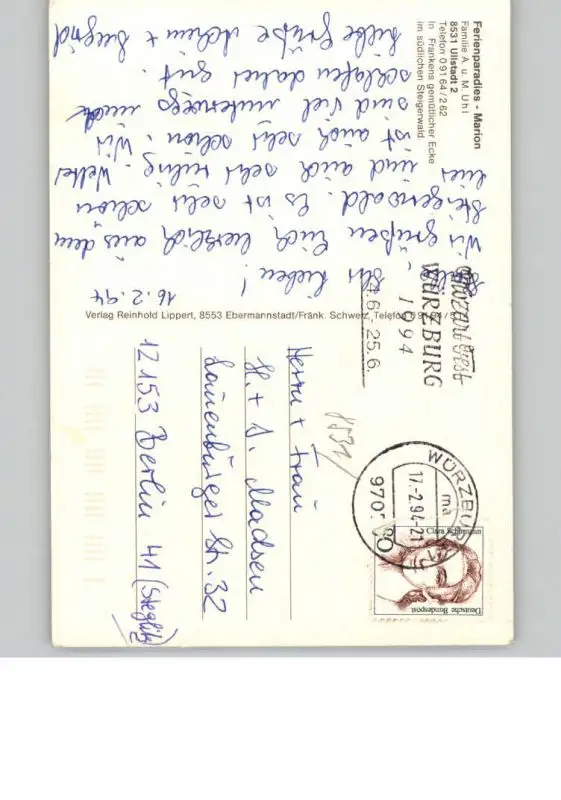 Ferienparadies - Marion
Familie A. u. M. Uhl
8531 Ullstadt 2
Telefon 0 91 64 / 2 62
In Frankens gemütlicher Ecke
im südlichen Steigerwald
16.2.94
Ihr Lieben!
Wir grüßen Euch herzlich aus dem
Steigerwald. Es ist sehr schön
hier und auch sehr ruhig. Wetter
ist auch sehr schön. Wir
sind viel unterwegs und
schlafen daher gut.
Liebe Grüße Achim + Siegrid
Verlag Reinhold Lippert, 8553 Ebermannstadt/Fränk. Schweiz, Telefon 0 91
Mozartfest
WÜRZBURG
1994
.6.-25.6.
WÜRZBU
ma
17.-2.94-21
970
Clara Schumann
Deutsche Bundespost
80
8531
Herrn + Frau
H. + I. Madsen
Lauenburger Str. 32
12153 Berlin 41 (Steglitz)